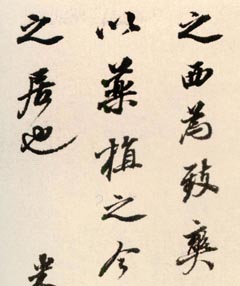 之西為致爽
以藥植之今
之居也